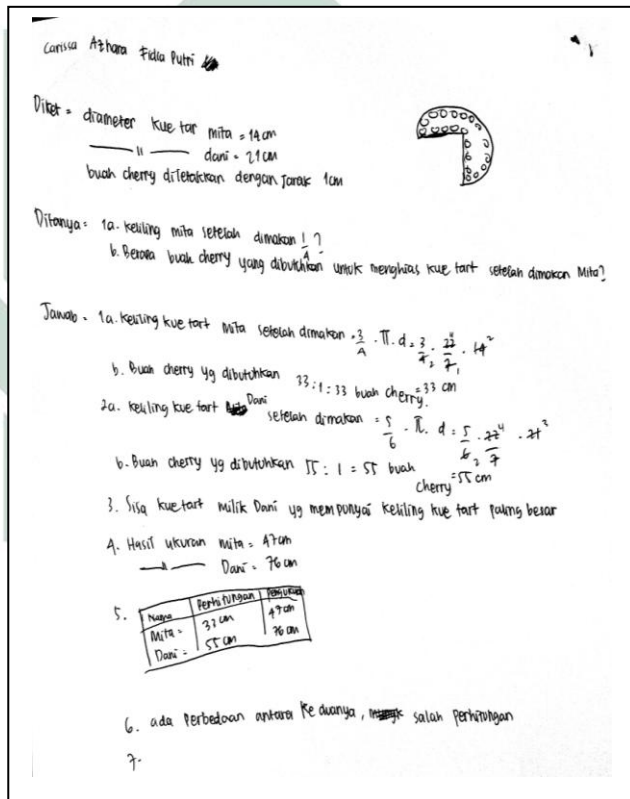 Carissa Azhara Fidia Putri
Diket = diameter kue tar mita = 14 cm
—— 11 —— dani = 21 cm
buah cherry diletakkan dengan jarak 1cm
Ditanya = 1a. keliling mita setelah dimakan 1/4 ?
b. Berapa buah cherry yang dibutuhkan untuk menghias kue tart setelah dimakan Mita?
Jawab = 1a. Keliling kue tart Mita setelah dimakan = 3/4 . π . d = 3/4 . 22/7 . 14
= 33 cm
b. Buah cherry yg dibutuhkan 33 : 1 = 33 buah cherry.
2a. keliling kue tart Dani setelah dimakan = 5/6 . π . d = 5/6 . 22/7 . 21
= 55 cm
b. Buah cherry yg dibutuhkan 55 : 1 = 55 buah cherry
3. Sisa kue tart milik Dani yg mempunyai keliling kue tart paling besar
4. Hasil ukuran mita = 47 cm
—— 11 —— Dani = 76 cm
5. Nama Perhitungan Pengukuran
Mita = 33 cm 47 cm
Dani = 55 cm 76 cm
6. ada perbedaan antara keduanya, salah perhitungan
7.